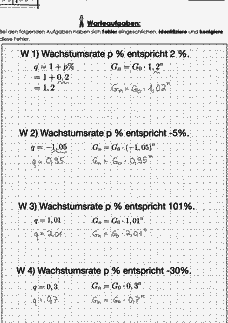 Warteaufgaben:
Bei den folgenden Aufgaben haben sich Fehler eingeschlichen. Identifiziere und korrigiere
diese Fehler.
W 1) Wachstumsrate p % entspricht 2 %.
q = 1 + p% Gₙ = G₀ · 1,2ⁿ
= 1 + 0,2
= 1,2 Gₙ = G₀ · 1,02ⁿ
W 2) Wachstumsrate p % entspricht -5%.
q = −1,05 Gₙ = G₀ · (−1,05)ⁿ
q = 0,95 Gₙ = G₀ · 0,95ⁿ
W 3) Wachstumsrate p % entspricht 101%.
q = 1,01 Gₙ = G₀ · 1,01ⁿ
q = 2,01 Gₙ = G₀ · 2,01ⁿ
W 4) Wachstumsrate p % entspricht -30%.
q = 0,3 Gₙ = G₀ · 0,3ⁿ
q = 0,7 Gₙ = G₀ · 0,7ⁿ